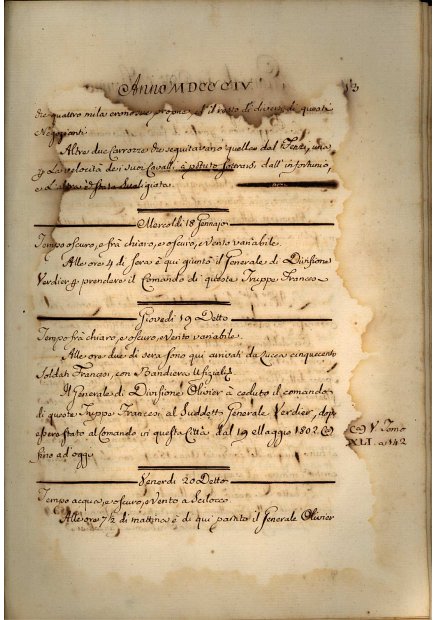 Anno MDCCCIV
13
che quattro mila erono sue proprie, e il resto di diversi di questi
Negozianti
Altre due Carrozze che seguitavano quella del Tenti, una
p. la velocità dei suoi Cavalli, à potuto sottrarsi dall'infortunio,
e L'altra
Mercoldì 18 Gennajo
Tempo oscuro, e frà chiaro, e oscuro, e vento variabile.
Alle ore 4 di sera è qui giunto il Generale di Divisione
Verdier p. prendere il Comando di queste Truppe Francesi
Giovedì 19 Detto
Tempo frà chiaro, e oscuro, e Vento variabile.
Alle ore due di sera sono qui arrivati da Lucca cinquecento
Soldati Francesi, con Bandiera Ufizialj
Il Generale di Divisione Olivier à ceduto il comando
di queste Truppe Francesi al Suddetto Generale Verdier, dopo
essere stato al Comando in questa Città dal 19 Maggio 1802 (a)
fino ad oggi
(a) V Tomo
XLI. a 142
Venerdì 20 Detto
Tempo acqua, e oscuro, e Vento a Scilocco
Alle ore 7½ di mattina è di qui partito il Generale Olivier